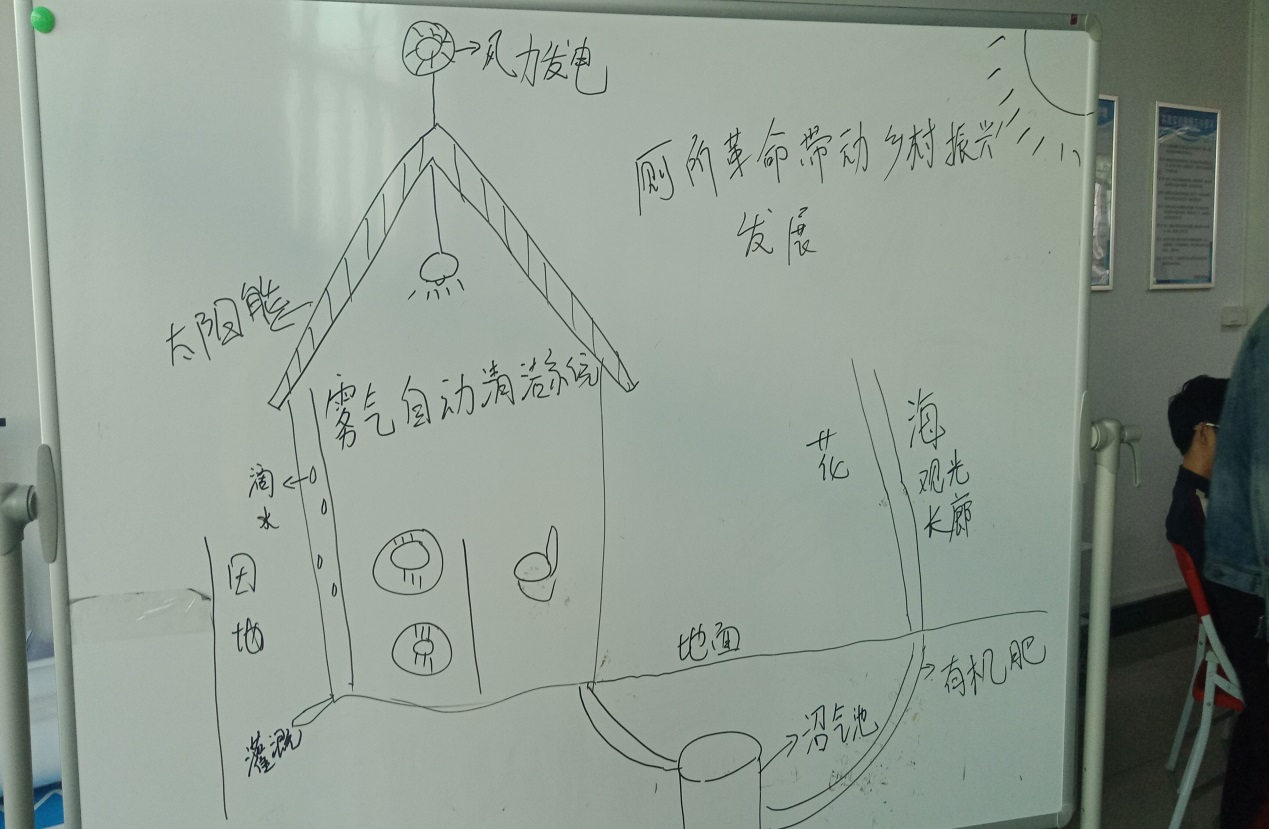 风力发电
厕所革命带动乡村振兴
发展
太阳能
雾气自动清洁系统
滴水
花
海
观光
长廊
因地
地面
有机肥
沼气池
灌溉